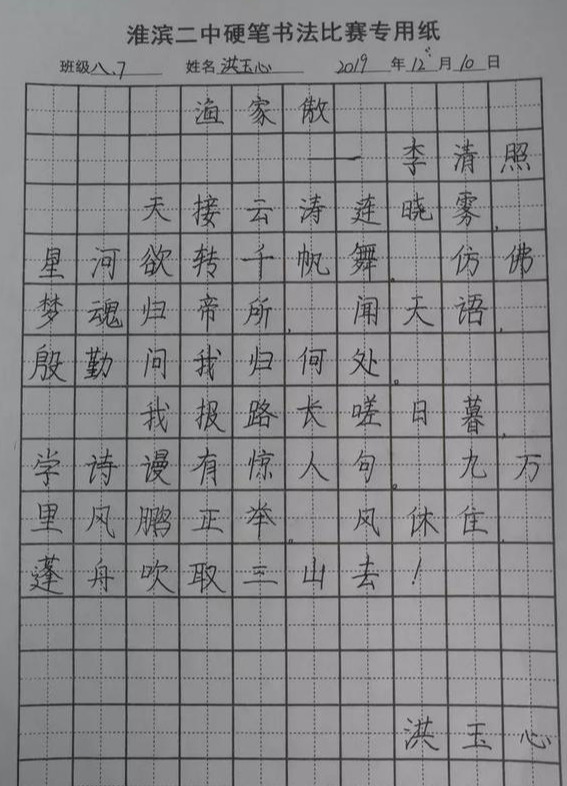 淮滨二中硬笔书法比赛专用纸
班级八.7 姓名洪玉心 2019年12月10日
渔家傲
一李清照
天接云涛连晓雾,
星河欲转千帆舞。仿佛
梦魂归帝所,闻天语,
殷勤问我归何处。
我报路长嗟日暮,
学诗谩有惊人句。九万
里风鹏正举。风休住,
蓬舟吹取三山去!
洪玉心